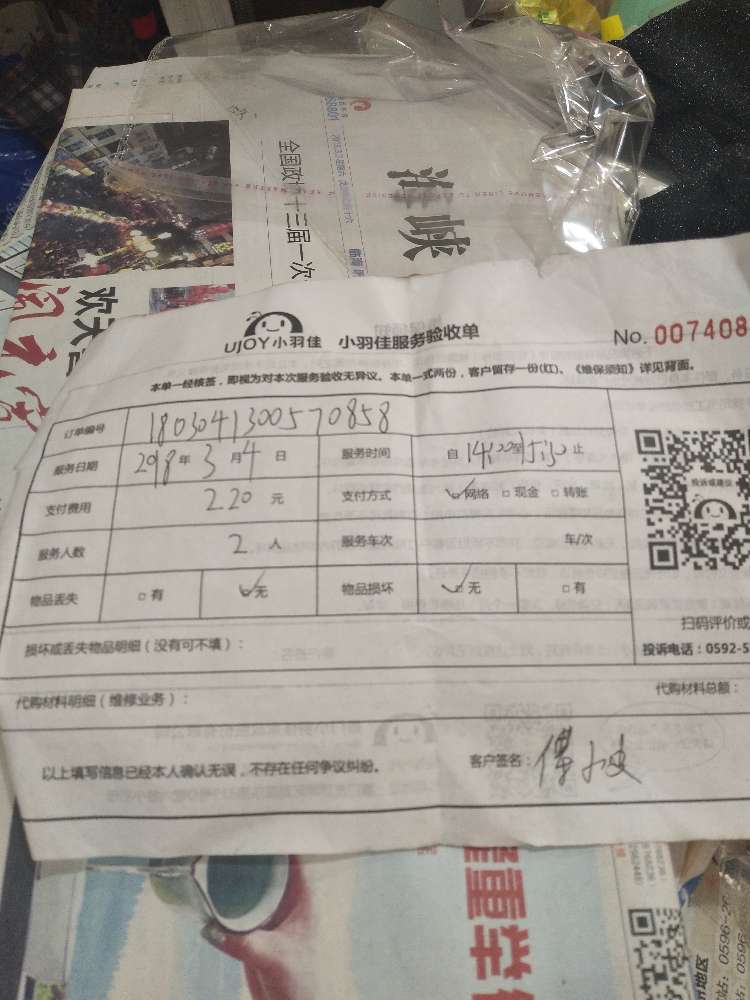 海峡
全国政协十三届一次
欢天
UJOY小羽佳 小羽佳服务验收单
No. 007408
本单一经核签，即视为对本次服务验收无异议。本单一式两份，客户留存一份(红)，《维保须知》详见背面。
订单编号 180304130057 0858
服务日期 2018 年 3 月 4 日 服务时间 自 14:00 至 15:30 止
支付费用 220 元 支付方式 网络 现金 转账
投诉或建议
服务人数 2 人 服务车次 车/次
物品丢失 有 无 物品损坏 无 有
扫码评价或
损坏或丢失物品明细（没有可不填）：
投诉电话：0592-5
代购材料明细（维修业务）： 代购材料总额：
以上填写信息已经本人确认无误，不存在任何争议纠纷。 客户签名：
0596-26
地区